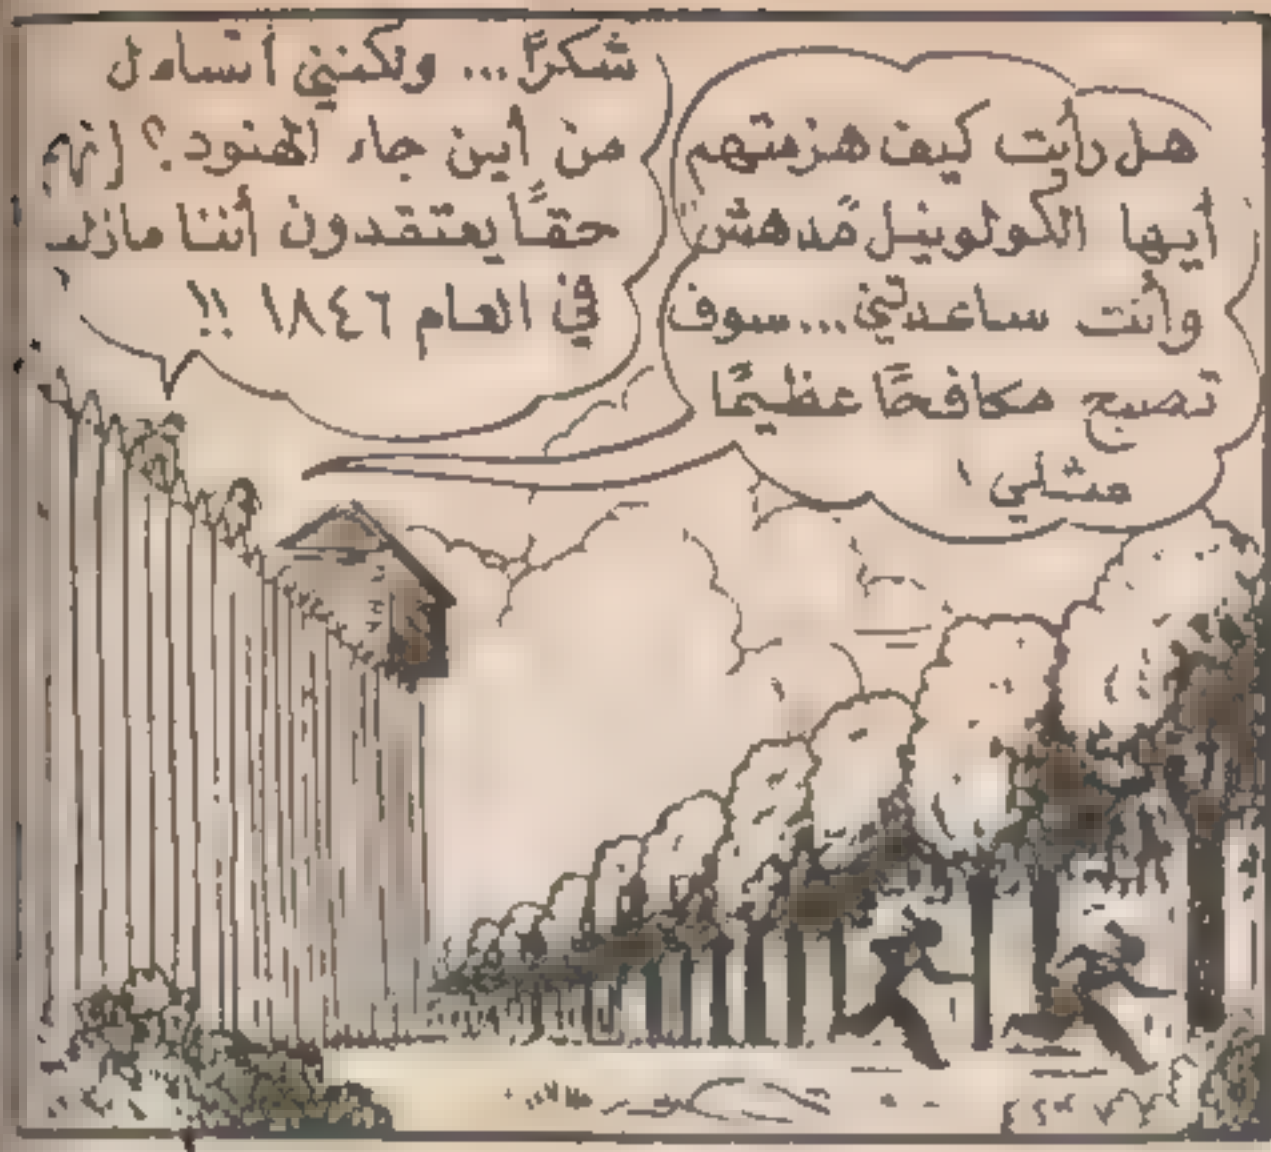 هل رأيت كيف هزمتهم
أيها الكولونيل مدهش
وأنت ساعدتني... سوف
تصبح مكافحًا عظيمًا
مثلي !
شكرًا... ولكنني أتساءل
من أين جاء الهنود؟ إنهم
حقًا يعتقدون أننا مازلـ
في العام ١٨٤٦ !!